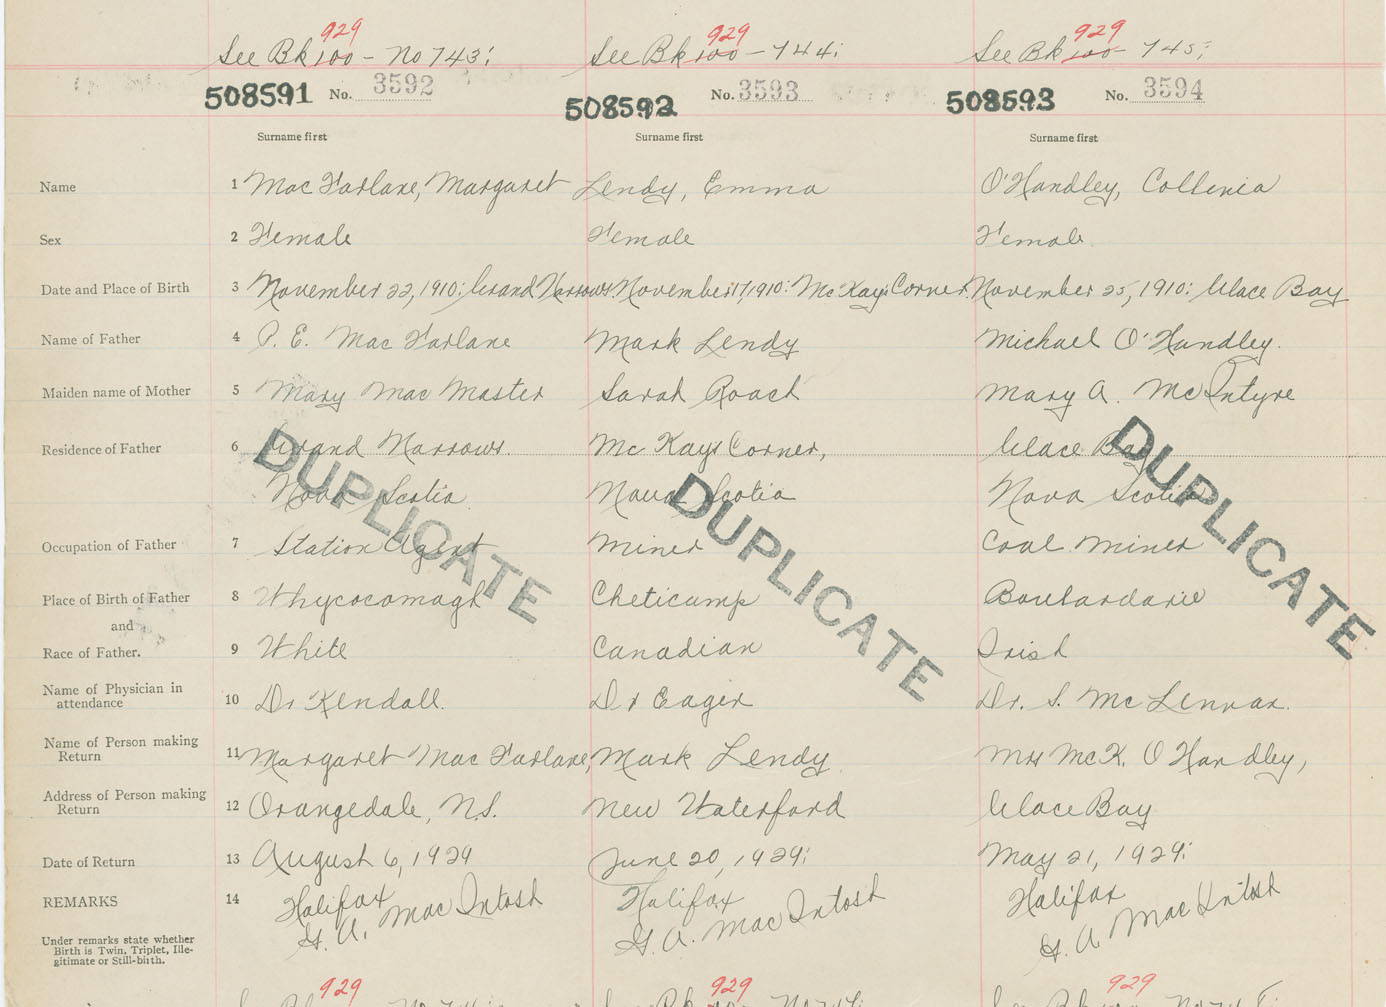 929 929 929
See Bk 100 - No 743; See Bk 100 - 744; See Bk 100 - 745;
508591 No. 3592 508592 No. 3593 508593 No. 3594
Surname first Surname first Surname first
Name 1 MacFarlane, Margaret Lendy, Emma O'Handley, Collenia
Sex 2 Female Female Female
Date and Place of Birth 3 November 22, 1910: Grand Narrows. November 17, 1910: McKays Corner. November 25, 1910: Glace Bay
Name of Father 4 P. E. MacFarlane Mark Lendy Michael O'Handley.
Maiden name of Mother 5 Mary MacMaster Sarah Roach Mary A. McIntyre
Residence of Father 6 Grand Narrows. McKays Corner, Glace Bay
Nova Scotia Nova Scotia Nova Scotia
DUPLICATE DUPLICATE DUPLICATE
Occupation of Father 7 Station Agent Miner Coal Miner
Place of Birth of Father 8 Whycocomagh Cheticamp Boulardarie
and
Race of Father. 9 White Canadian Irish
Name of Physician in
attendance 10 Dr Kendall. Dr Eager Dr. S. McLennan.
Name of Person making
Return 11 Margaret MacFarlane, Mark Lendy Mrs McK. O'Handley,
Address of Person making
Return 12 Orangedale, N.S. New Waterford Glace Bay
Date of Return 13 August 6, 1929 June 20, 1929: May 21, 1929:
REMARKS 14 Halifax Halifax Halifax
G. A. MacIntosh G. A. MacIntosh G. A. MacIntosh
Under remarks state whether
Birth is Twin, Triplet, Ille-
gitimate or Still-birth.
929 929 929